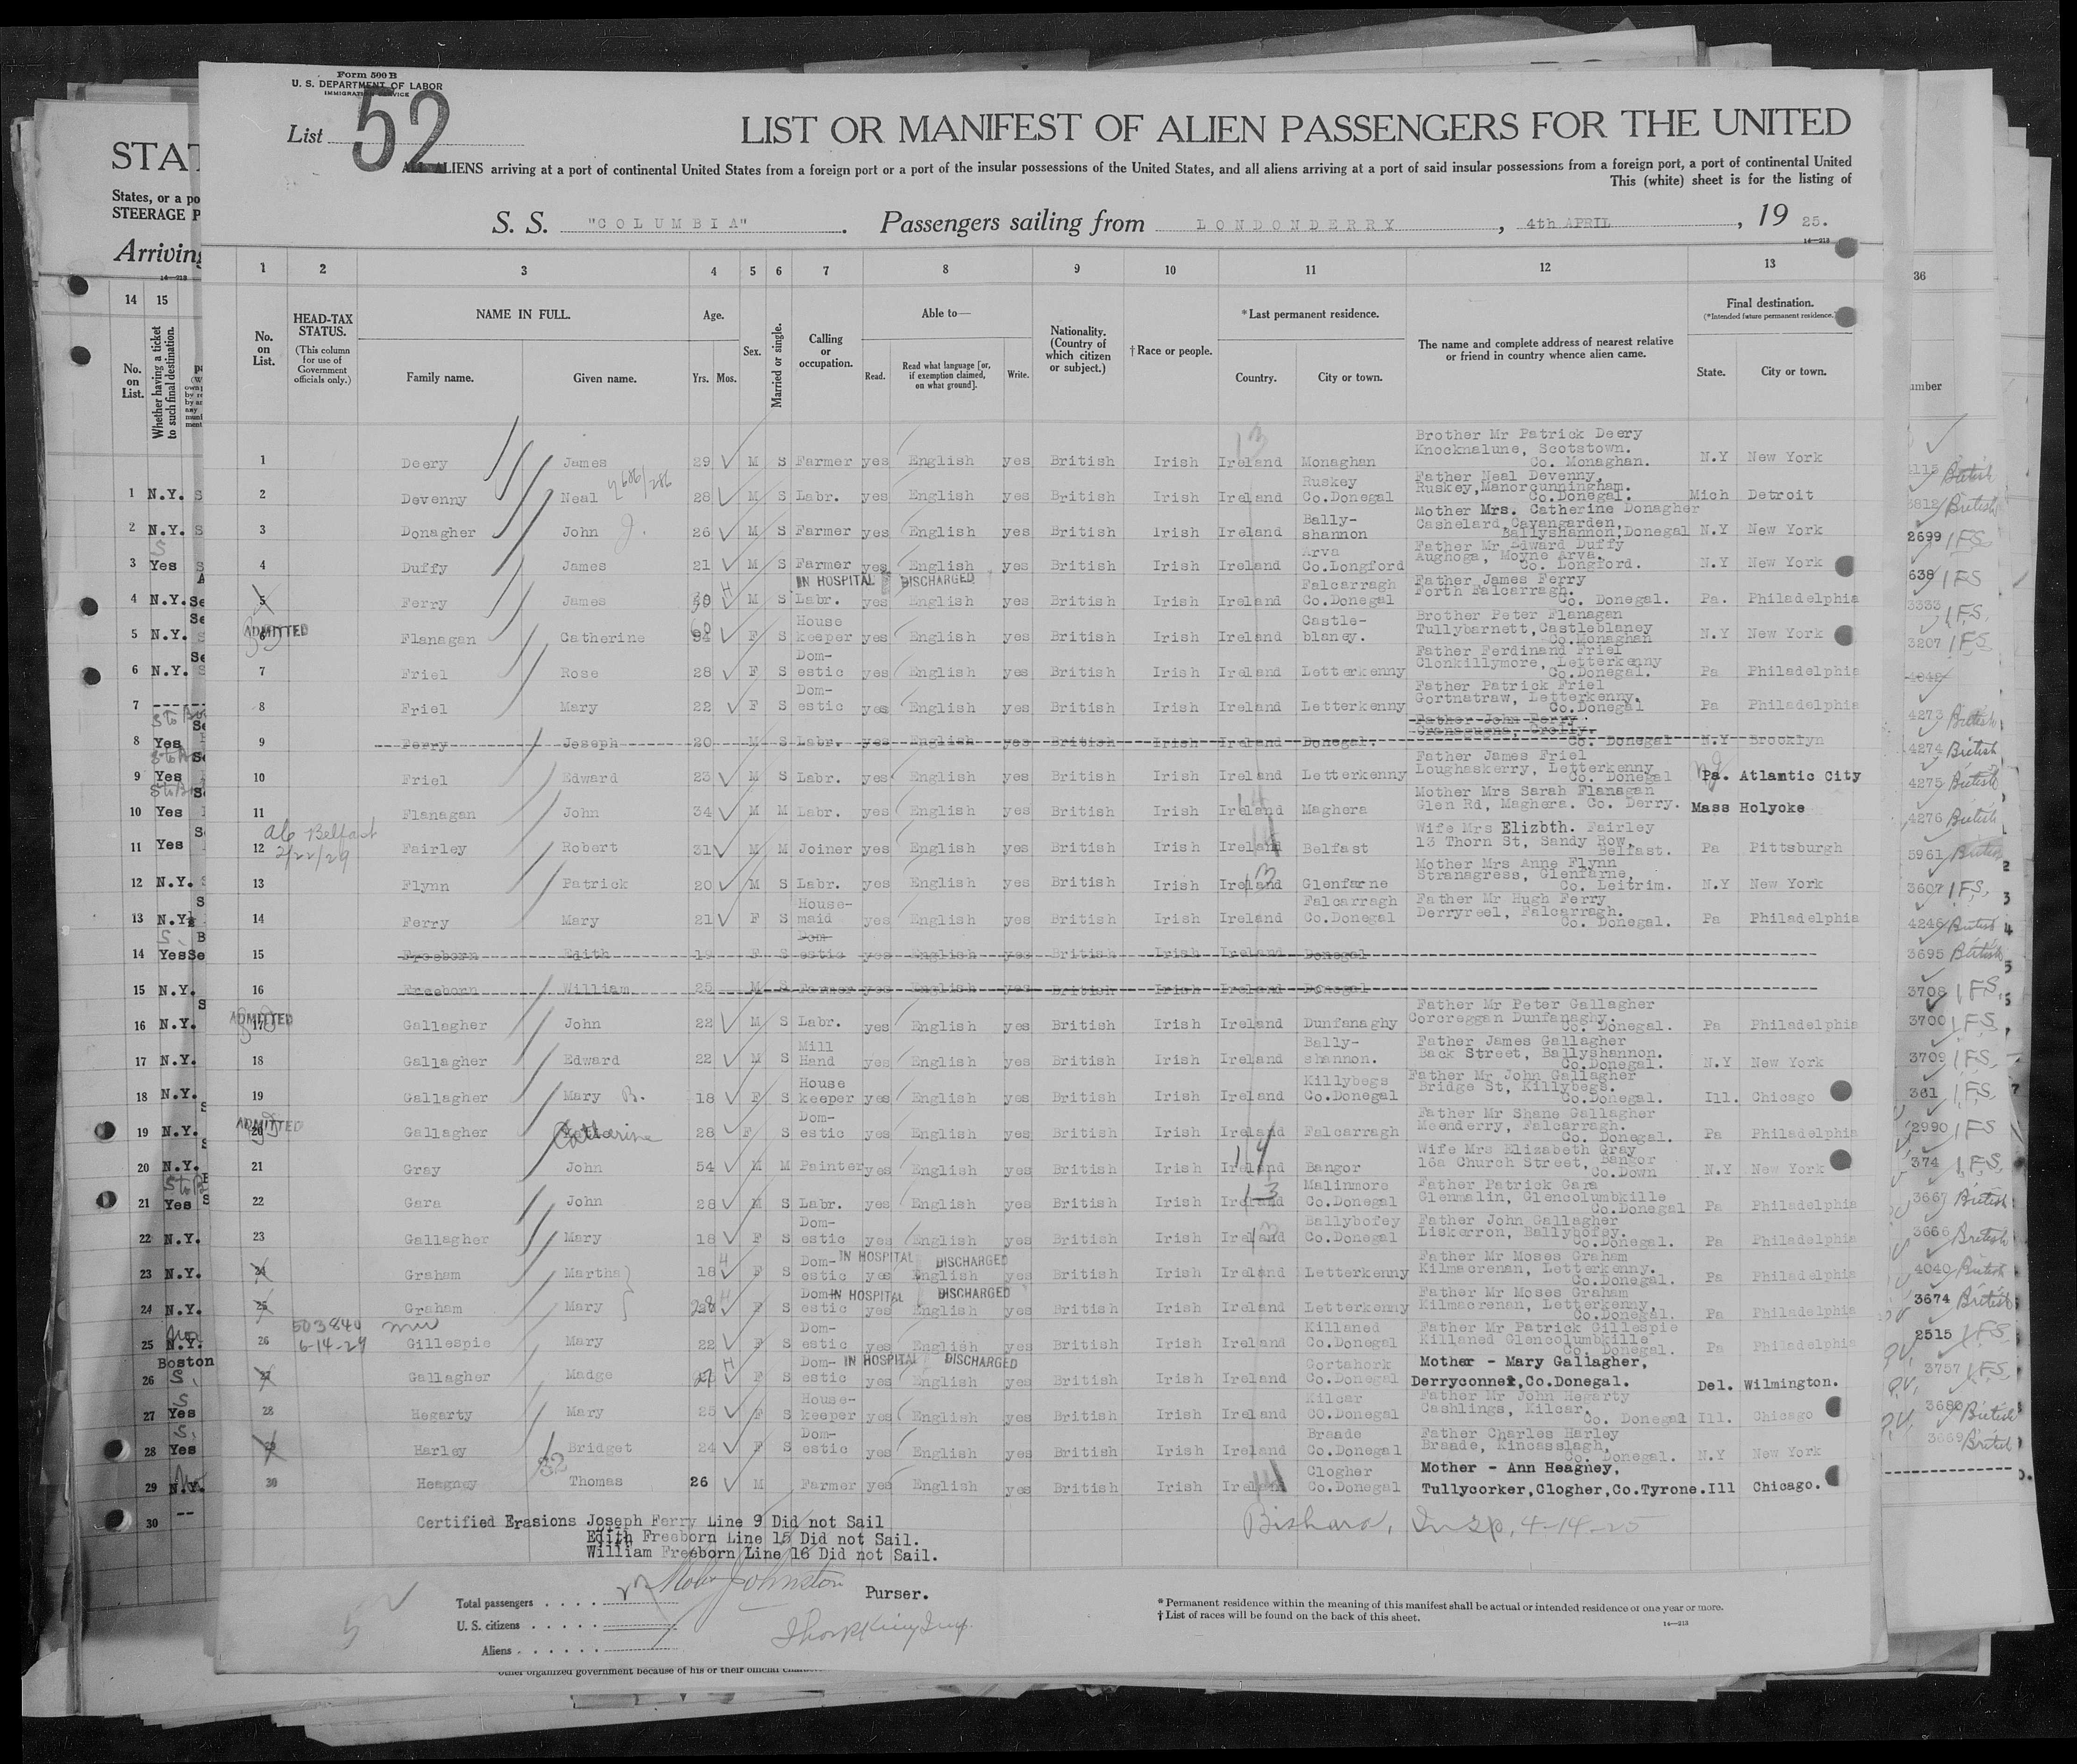 Form 500 B
U. S. DEPARTMENT OF LABOR
IMMIGRATION SERVICE
List 52
LIST OR MANIFEST OF ALIEN PASSENGERS FOR THE UNITED
ALL ALIENS arriving at a port of continental United States from a foreign port or a port of the insular possessions of the United States, and all aliens arriving at a port of said insular possessions from a foreign port, a port of continental United
This (white) sheet is for the listing of
S. S. "COLUMBIA". Passengers sailing from LONDONDERRY, 4th APRIL, 19 25.
14—213
1 2 3 4 5 6 7 8 9 10 11 12 13
No. on List. HEAD-TAX STATUS. (This column for use of Government officials only.) NAME IN FULL. Family name. Given name. Age. Yrs. Mos. Sex. Married or single. Calling or occupation. Able to— Read. Read what language [or, if exemption claimed, on what ground]. Write. Nationality. (Country of which citizen or subject.) †Race or people. *Last permanent residence. Country. City or town. The name and complete address of nearest relative or friend in country whence alien came. Final destination. (*Intended future permanent residence.) State. City or town.
1 Deery James 29 M S Farmer yes English yes British Irish Ireland Monaghan Brother Mr Patrick Deery Knocknalune, Scotstown. Co. Monaghan. N.Y New York
2 Devenny Neal 28 M S Labr. yes English yes British Irish Ireland Ruskey Co.Donegal Father Neal Devenny, Ruskey, Manorcunningham. Co.Donegal. Mich Detroit
3 Donagher John J. 26 M S Farmer yes English yes British Irish Ireland Bally-shannon Mother Mrs. Catherine Donagher Cashelard, Cavangarden, Ballyshannon, Donegal N.Y New York
4 Duffy James 21 M S Farmer yes English yes British Irish Ireland Arva Co.Longford Father Mr Edward Duffy Aughoga, Moyne Arva. Co. Longford. N.Y New York
5 Ferry James M S Labr. IN HOSPITAL DISCHARGED yes English yes British Irish Ireland Falcarragh Co.Donegal Father James Ferry Forth Falcarragh. Co. Donegal. Pa. Philadelphia
ADMITTED 6 Flanagan Catherine F S House keeper yes English yes British Irish Ireland Castle-blaney. Brother Peter Flanagan Tullybarnett, Castleblaney Co.Monaghan N.Y New York
7 Friel Rose 28 F S Dom-estic yes English yes British Irish Ireland Letterkenny Father Ferdinand Friel Clonkillymore, Letterkenny Co.Donegal. Pa Philadelphia
8 Friel Mary 22 F S Dom-estic yes English yes British Irish Ireland Letterkenny Father Patrick Friel Gortnatraw, Letterkenny. Co.Donegal Pa Philadelphia
9 Ferry Joseph 20 M S Labr. yes English yes British Irish Ireland Donegal. Father John Ferry Co. Donegal N.Y Brooklyn
10 Friel Edward 23 M S Labr. yes English yes British Irish Ireland Letterkenny Father James Friel Loughaskerry, Letterkenny Co. Donegal Pa. Atlantic City
11 Flanagan John 34 M M Labr. yes English yes British Irish Ireland Maghera Mother Mrs Sarah Flanagan Glen Rd, Maghera. Co. Derry. Mass Holyoke
12 Fairley Robert 31 M M Joiner yes English yes British Irish Ireland Belfast Wife Mrs Elizbth. Fairley 13 Thorn St, Sandy Row, Belfast. Pa Pittsburgh
Belfast 2/22/29
13 Flynn Patrick 20 M S Labr. yes English yes British Irish Ireland Glenfarne Mother Mrs Anne Flynn Stranagress, Glenfarne, Co. Leitrim. N.Y New York
14 Ferry Mary 21 F S House-maid yes English yes British Irish Ireland Falcarragh Co.Donegal Father Mr Hugh Ferry Derryreel, Falcarragh. Co. Donegal. Pa Philadelphia
15 Freeborn Edith 19 F S Dom-estic yes English yes British Irish Ireland Donegal
16 Freeborn William 25 M S Farmer yes English yes British Irish Ireland Donegal
ADMITTED 17 Gallagher John 22 M S Labr. yes English yes British Irish Ireland Dunfanaghy Father Mr Peter Gallagher Corcreggan Dunfanaghy. Co. Donegal. Pa Philadelphia
18 Gallagher Edward 22 M S Mill Hand yes English yes British Irish Ireland Bally-shannon. Father James Gallagher Back Street, Ballyshannon. Co.Donegal. N.Y New York
19 Gallagher Mary B. 18 F S House keeper yes English yes British Irish Ireland Killybegs Co.Donegal Father Mr John Gallagher Bridge St, Killybegs. Co.Donegal. Ill. Chicago
ADMITTED 20 Gallagher Catherine 28 F S Dom-estic yes English yes British Irish Ireland Falcarragh Father Mr Shane Gallagher Meenderry, Falcarragh. Co. Donegal. Pa Philadelphia
21 Gray John 54 M M Painter yes English yes British Irish Ireland Bangor Wife Mrs Elizabeth Gray 16a Church Street, Bangor Co.Down N.Y New York
22 Gara John 28 M S Labr. yes English yes British Irish Ireland Malinmore Co.Donegal Father Patrick Gara Glenmalin, Glencolumbkille Co.Donegal Pa Philadelphia
23 Gallagher Mary 18 F S Dom-estic yes English yes British Irish Ireland Ballybofey Co.Donegal Father John Gallagher Liskerron, Ballybofey. Co.Donegal. Pa Philadelphia
24 Graham Martha 18 F S Dom-estic IN HOSPITAL DISCHARGED yes English yes British Irish Ireland Letterkenny Father Mr Moses Graham Kilmacrenan, Letterkenny. Co.Donegal. Pa Philadelphia
25 Graham Mary F S Dom-estic IN HOSPITAL DISCHARGED yes English yes British Irish Ireland Letterkenny Father Mr Moses Graham Kilmacrenan, Letterkenny, Co.Donegal. Pa Philadelphia
503840 6-14-29
26 Gillespie Mary 22 F S Dom-estic yes English yes British Irish Ireland Killaned Co.Donegal Father Mr Patrick Gillespie Killaned Glencolumbkille Co. Donegal. Pa Philadelphia
27 Gallagher Madge 27 F S Dom-estic IN HOSPITAL DISCHARGED yes English yes British Irish Ireland Gortahork Co.Donegal Mother - Mary Gallagher, Derryconner, Co.Donegal. Del. Wilmington.
28 Hegarty Mary 25 F S House-keeper yes English yes British Irish Ireland Kilcar CO.Donegal Father Mr John Hegarty Cashlings, Kilcar. Co. Donegal Ill. Chicago
29 Harley Bridget 24 F S Dom-estic yes English yes British Irish Ireland Braade Co.Donegal Father Charles Harley Braade, Kincasslagh, Co. Donegal. N.Y New York
30 Heagney Thomas 26 M Farmer yes English yes British Irish Ireland Clogher Co.Donegal Mother - Ann Heagney, Tullycorker, Clogher, Co.Tyrone. Ill Chicago.
Certified Erasions Joseph Ferry Line 9 Did not Sail
Edith Freeborn Line 15 Did not Sail.
William Freeborn Line 16 Did not Sail.
Insp, 4-14-25
Johnston Purser.
Total passengers
U. S. citizens
Aliens
* Permanent residence within the meaning of this manifest shall be actual or intended residence of one year or more.
† List of races will be found on the back of this sheet.
14—213
STAT
States, or a po
STEERAGE P
Arriving
14 15
No. on List.
Whether having a ticket to such final destination.
1 N.Y.
2 N.Y.
3 Yes
4 N.Y.
5 N.Y.
6 N.Y.
7
8 Yes
9 Yes
10 Yes
11 Yes
12 N.Y.
13 N.Y.
14 Yes
15 N.Y.
16 N.Y.
17 N.Y.
18 N.Y.
19 N.Y.
20 N.Y.
21 Yes
22 N.Y.
23 N.Y.
24 N.Y.
25 N.Y.
Boston
26
27 Yes
28 Yes
29 N.Y.
30 --
36
umber
2699
638
3333
3207
4273 British
4274 British
4275 British
4276 British
5961 British
3607
4246 British
3695 British
3708
3700
3709
361
2990
374
3667 British
3666 British
4040 British
3674 British
2515
3757
3680 British
3669 British